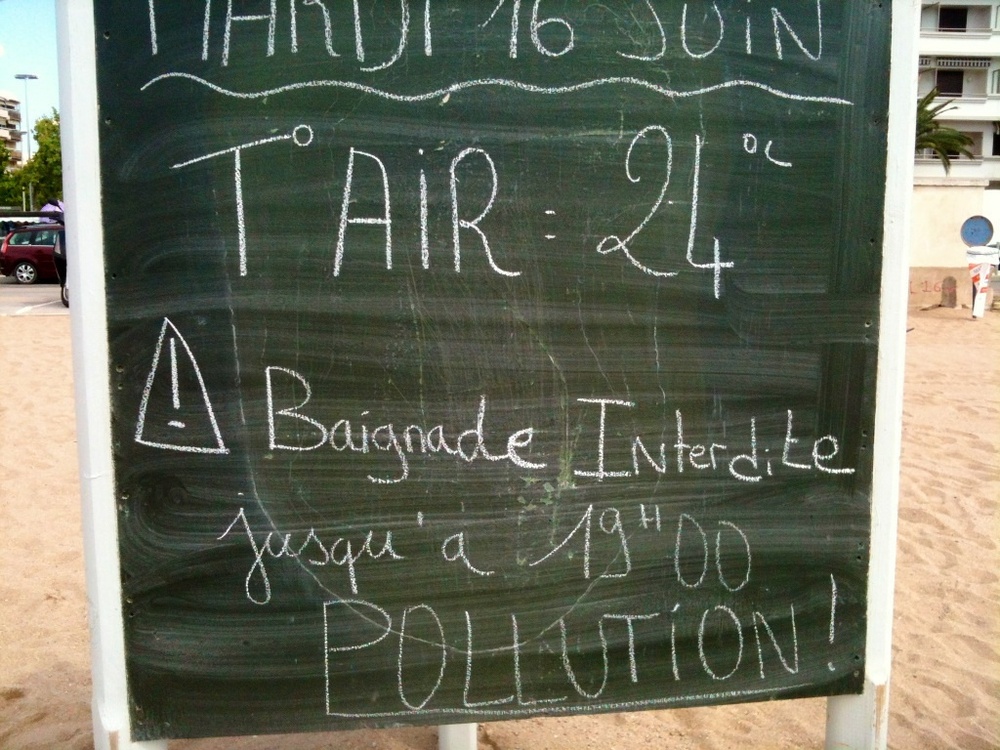 MARDI 16 JUIN
T° AIR : 24 °C
! Baignade Interdite
jusqu'à 19H00
POLLUTION!